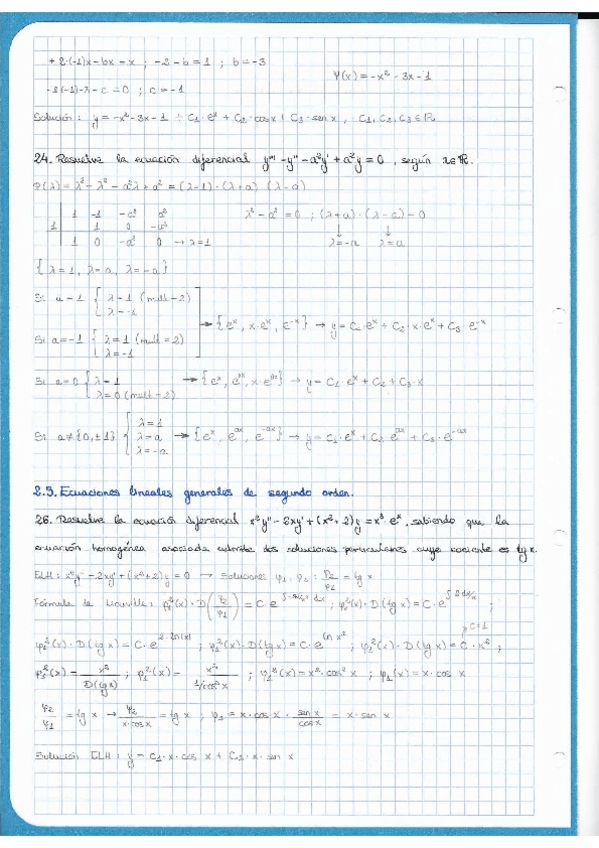 +2·(-1)x - bx = x ; -2-b=1 ; b=-3
Ψ(x) = -x² - 3x - 1
-2·(-1)-2-c=0 ; c=-1
Solución: y = -x²-3x-1 + C₁·eˣ + C₂·cos x + C₃·sen x , C₁,C₂,C₃∈ℝ.
24. Resuelve la ecuación diferencial y'''-y''-a²y'+a²y=0, según a∈ℝ.
P(λ) = λ³-λ²-a²λ+a² = (λ-1)·(λ+a)·(λ-a)
1 -1 -a² a²
1 1 0 -a²
1 0 -a² 0 → λ=1
λ²-a²=0 ; (λ+a)·(λ-a)=0
↓ ↓
λ=-a λ=a
{λ=1, λ=a, λ=-a}
Si a=1 { λ=1 (mult=2)
λ=-1
→ {eˣ, x·eˣ, e⁻ˣ} → y = C₁·eˣ + C₂·x·eˣ + C₃·e⁻ˣ
Si a=-1 { λ=1 (mult=2)
λ=-1
Si a=0 { λ=1
λ=0 (mult=2)
→ {eˣ, e⁰ˣ, x·e⁰ˣ} → y = C₁·eˣ + C₂ + C₃·x
Si a≠{0,±1} { λ=1
λ=a
λ=-a
→ {eˣ, eᵃˣ, e⁻ᵃˣ} → y = C₁·eˣ + C₂·eᵃˣ + C₃·e⁻ᵃˣ
2.5. Ecuaciones lineales generales de segundo orden.
26. Resuelve la ecuación diferencial x²y''-2xy'+(x²+2)y=x³·eˣ, sabiendo que la
ecuación homogénea asociada admite dos soluciones particulares cuyo cociente es tg x.
ELH: x²y''-2xy'+(x²+2)y=0 → Soluciones φ₁, φ₂ : φ₂/φ₁ = tg x
Fórmula de Liouville: φ₁²(x)·D(φ₂/φ₁) = C·e^(∫-2x/x² dx) ; φ₁²(x)·D(tg x) = C·e^(∫2dx/x) ;
φ₁²(x)·D(tg x) = C·e^(2·ln|x|) ; φ₁²(x)·D(tg x) = C·e^(ln x²) ; φ₁²(x)·D(tg x) = C·x² ; C=1
φ₁²(x) = x²/D(tg x) ; φ₁²(x) = x²/(1/cos²x) ; φ₁²(x) = x²·cos²x ; φ₁(x) = x·cos x
φ₂/φ₁ = tg x → φ₂/(x·cos x) = tg x ; φ₂ = x·cos x · (sen x/cos x) = x·sen x
Solución ELH: y = C₁·x·cos x + C₂·x·sen x